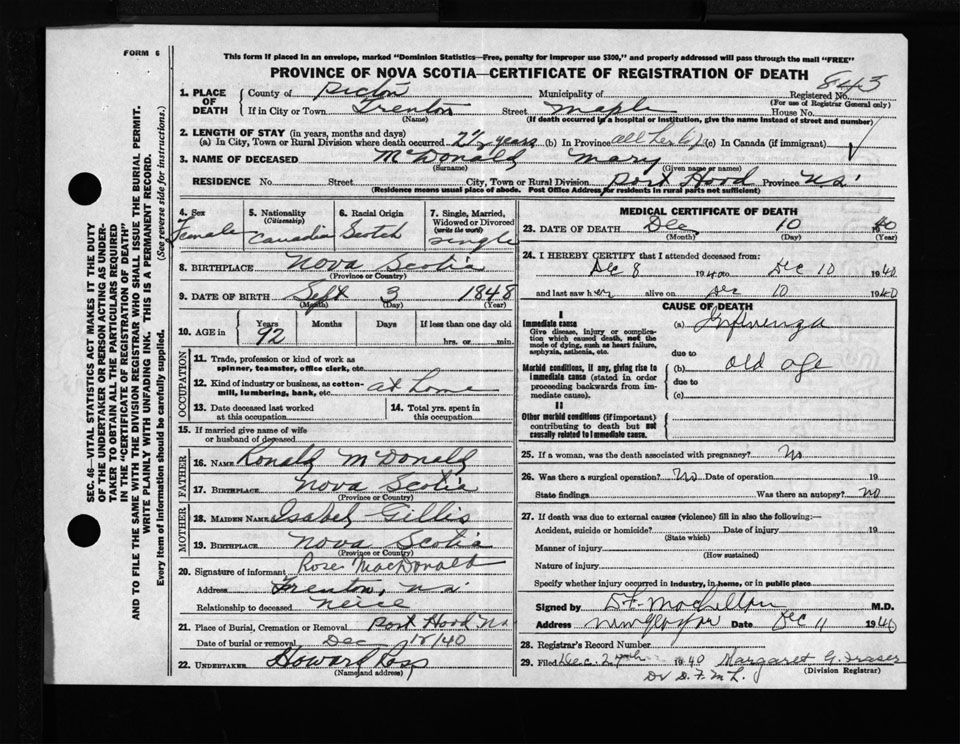 FORM 6
This form if placed in an envelope, marked "Dominion Statistics—Free, penalty for improper use $300," and properly addressed will pass through the mail "FREE"
PROVINCE OF NOVA SCOTIA—CERTIFICATE OF REGISTRATION OF DEATH
1. PLACE OF DEATH County of Pictou Municipality of Registered No. 8443
(For use of Registrar General only)
If in City or Town Trenton Street Maple House No.
(Name) (If death occurred in a hospital or institution, give the name instead of street and number)
2. LENGTH OF STAY (in years, months and days)
(a) In City, Town or Rural Division where death occurred 2½ years (b) In Province all her life (c) In Canada (if immigrant)
3. NAME OF DECEASED McDonald Mary
(Surname) (Given name or names)
RESIDENCE No. Street City, Town or Rural Division Port Hood Province N.S.
(Residence means usual place of abode. Post Office Address for residents in rural parts not sufficient)
4. Sex Female
5. Nationality (Citizenship) Canadian
6. Racial Origin Scotch
7. Single, Married, Widowed or Divorced (write the word) single
8. BIRTHPLACE Nova Scotia
(Province or Country)
9. DATE OF BIRTH Sept 3 1848
(Month) (Day) (Year)
10. AGE in Years Months Days If less than one day old
92 hrs. or min.
OCCUPATION
11. Trade, profession or kind of work as spinner, teamster, office clerk, etc.
12. Kind of industry or business, as cotton-mill, lumbering, bank, etc. at home
13. Date deceased last worked at this occupation
14. Total yrs. spent in this occupation
15. If married give name of wife or husband of deceased
FATHER
16. NAME Ronald McDonald
17. BIRTHPLACE Nova Scotia
(Province or Country)
MOTHER
18. MAIDEN NAME Isabel Gillis
19. BIRTHPLACE Nova Scotia
(Province or Country)
20. Signature of informant Rose MacDonald
Address Trenton, N.S.
Relationship to deceased Neice
21. Place of Burial, Cremation or Removal Port Hood N.S.
Date of burial or removal Dec 12/40
22. UNDERTAKER Howard Ross
(Name and address)
MEDICAL CERTIFICATE OF DEATH
23. DATE OF DEATH Dec 10 1940
(Month) (Day) (Year)
24. I HEREBY CERTIFY that I attended deceased from:
Dec 8 1940 to Dec 10 1940
and last saw her alive on Dec 10 1940
CAUSE OF DEATH
I
Immediate cause (a) Influenza
Give disease, injury or complication which caused death, not the mode of dying, such as heart failure, asphyxia, asthenia, etc.
due to
Morbid conditions, if any, giving rise to immediate cause (stated in order proceeding backwards from immediate cause).
(b) old age
due to
(c)
II
Other morbid conditions (if important) contributing to death but not causally related to immediate cause.
25. If a woman, was the death associated with pregnancy? No
26. Was there a surgical operation? No Date of operation 19
State findings Was there an autopsy? No
27. If death was due to external causes (violence) fill in also the following:—
Accident, suicide or homicide? Date of injury 19
(State which)
Manner of injury
(How sustained)
Nature of injury
Specify whether injury occurred in industry, in home, or in public place
Signed by D.F. MacLellan M.D.
Address New Glasgow Date Dec 11 1940
28. Registrar's Record Number
29. Filed Dec. 1940 Margaret G. Fraser
(Division Registrar)
Dr D. F. McL.
SEC. 46—VITAL STATISTICS ACT MAKES IT THE DUTY
OF THE UNDERTAKER OR PERSON ACTING AS UNDER-
TAKER TO OBTAIN ALL THE PARTICULARS REQUIRED
IN THE "CERTIFICATE OF REGISTRATION OF DEATH"
AND TO FILE THE SAME WITH THE DIVISION REGISTRAR WHO SHALL ISSUE THE BURIAL PERMIT.
WRITE PLAINLY WITH UNFADING INK. THIS IS A PERMANENT RECORD.
Every item of information should be carefully supplied. (See reverse side for instructions.)